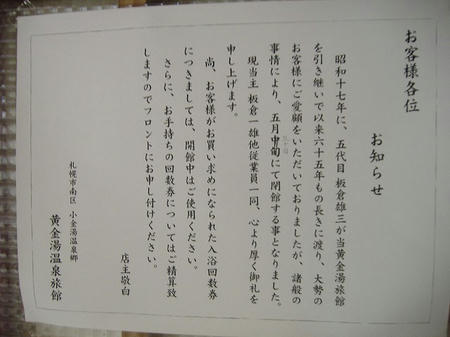 お客様各位
お知らせ
昭和十七年に、五代目 板倉雄三が当黄金湯旅館
を引き継いで以来六十五年もの長きに渡り、大勢の
お客様にご愛顧をいただいておりましたが、諸般の
事情により、五月中旬にて閉館する事となりました。
現当主 板倉一雄他従業員一同、心より厚く御礼を
申し上げます。
尚、お客様がお買い求めになられた入浴回数券
につきましては、開館中はご使用ください。
さらに、お手持ちの回数券についてはご精算致
しますのでフロントにお申し付けください。
店主敬白
札幌市南区 小金湯温泉郷
黄金湯温泉旅館